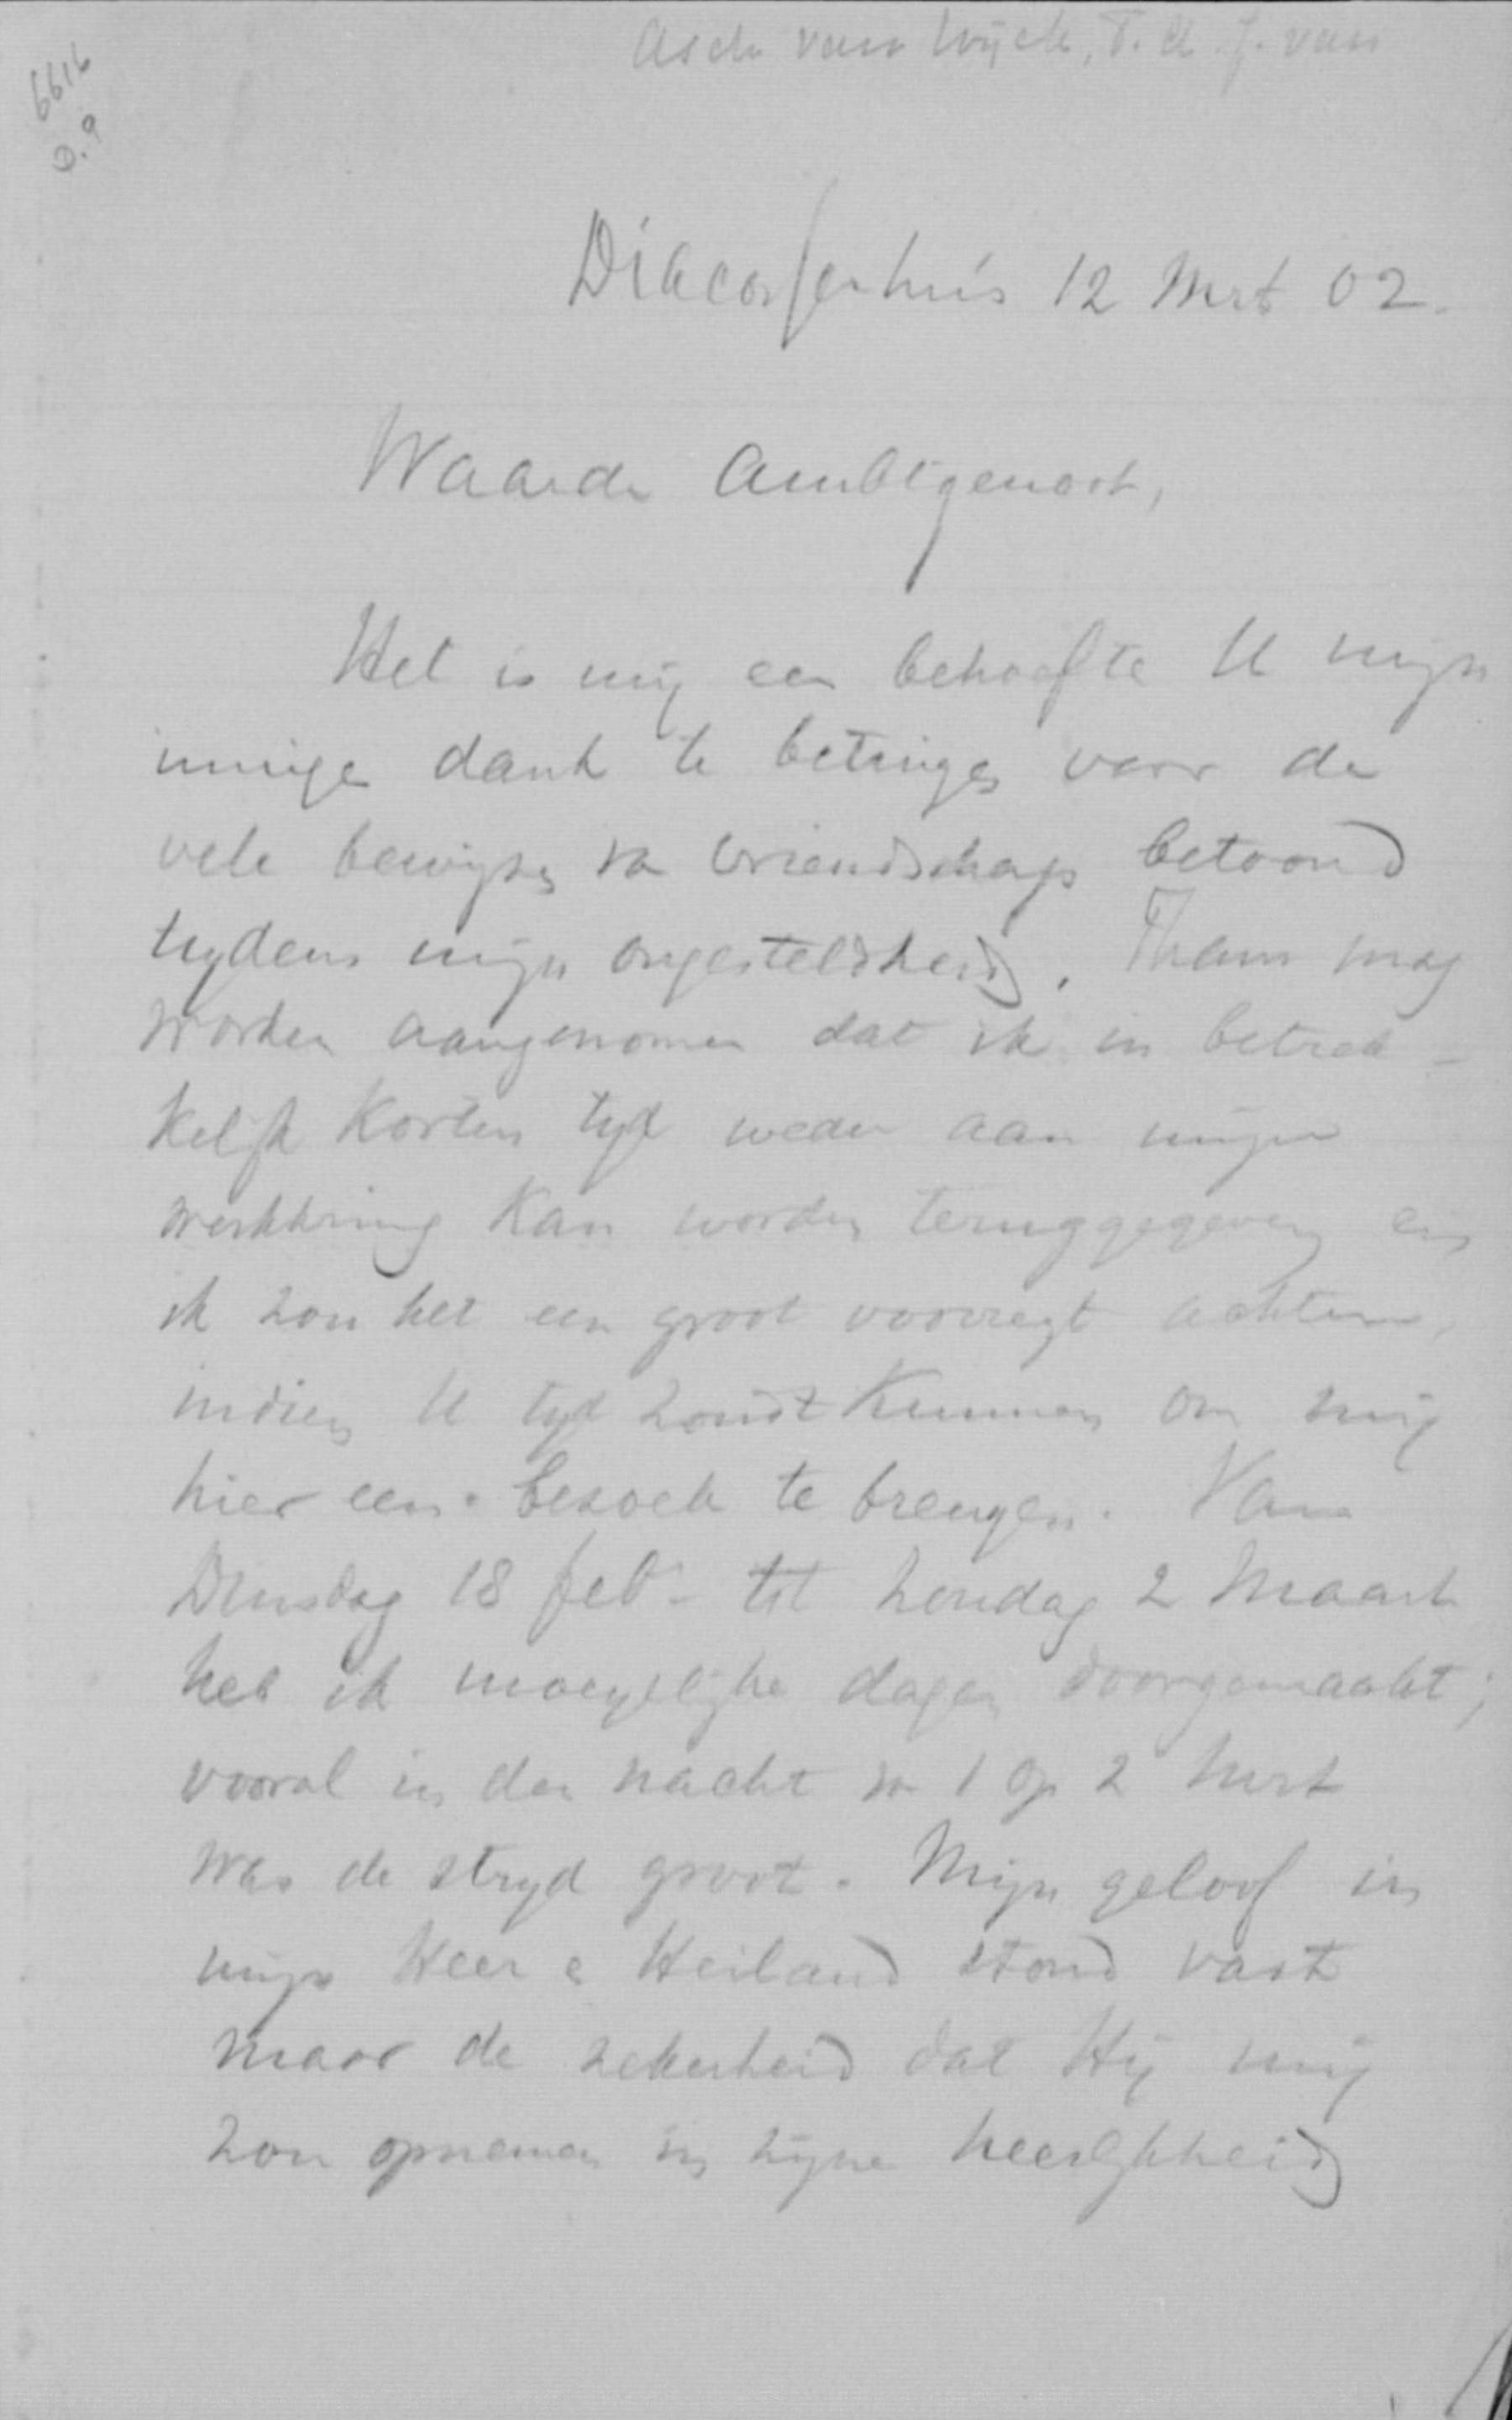 Asch van Wijck, T. A. J. van
6616
D. 9
Diaconessenhuis 12 Mrt 02.
Waarde Ambtgenoot,
Het is mij een behoefte U mijn
innige dank te betuigen voor de
vele bewijzen va vriendschap betoond
tijdens mijn ongesteldheid. Thans mag
worden aangenomen dat ik in betrek-
kelijk korten tijd weder aan mijn
werkkring kan worden teruggegeven en
ik zou het een groot voorregt achten,
indien U tijd zoudt kunnen om mij
hier een bezoek te brengen. Van
Dinsdag 18 febr. tot Zondag 2 Maart
heb ik moeyelijke dagen doorgemaakt;
vooral in den nacht va 1 op 2 Mrt
was de strijd groot. Mijn geloof in
mijn Heer e Heiland stond vast
maar de zekerheid dat Hij mij
zou opnemen in zijne heerlijkheid